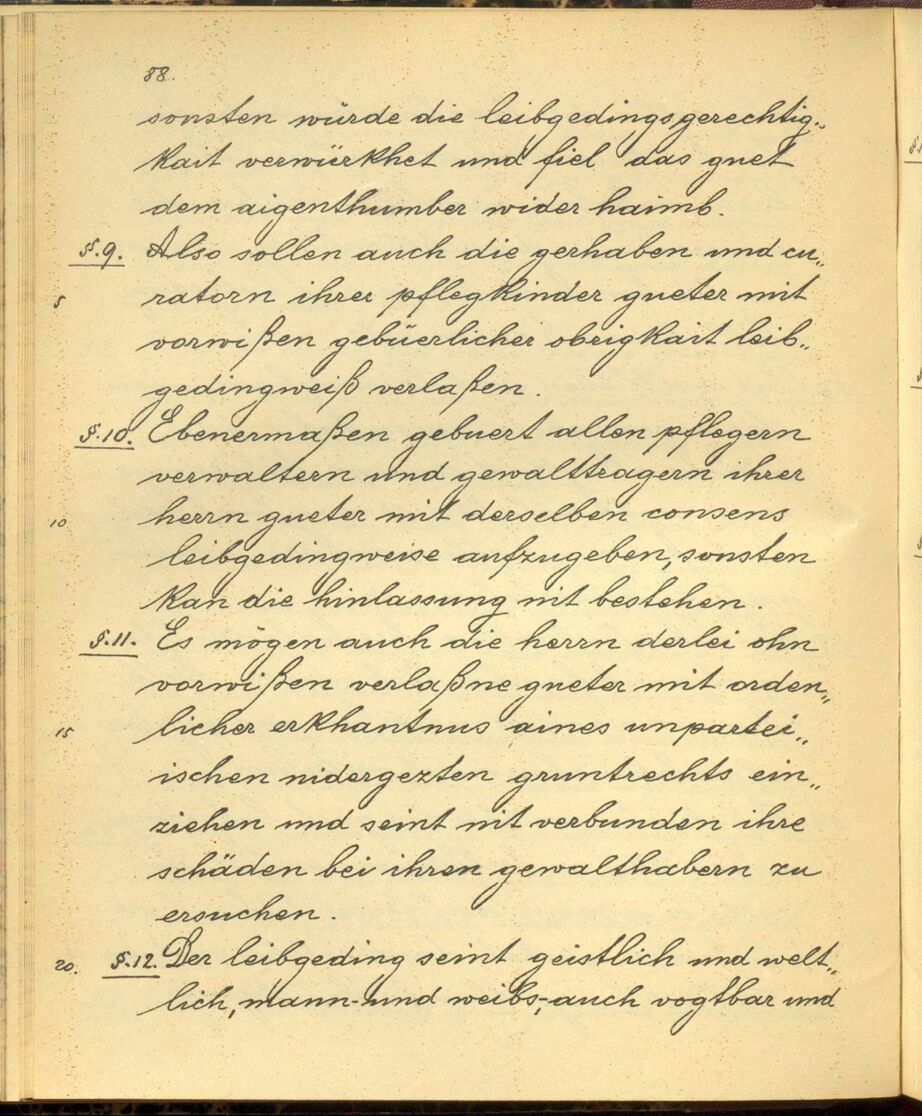 88.
sonsten würde die leibgedingsgerechtig„
kait verwürkhet und fiel das guet
dem aigenthumber wider haimb.
§.9. Also sollen auch die gerhaben und cu„
5 ratorn ihrer pflegkinder gueter mit
vorwißen gebüerlicher obrigkait leib„
gedingweiß verlaßen.
§.10. Ebenermaßen gebuert allen pflegern
verwaltern und gewalttragern ihrer
10 herrn gueter mit derselben consens
leibgedingweise aufzugeben, sonsten
kan die hinlassung nit bestehen.
§.11. Es mögen auch die herrn derlei ohn
vorwißen verlaßne gueter mit orden„
15 licher erkhantnus aines unpartei„
ischen nidergezten gruntrechts ein„
ziehen und seint nit verbunden ihre
schäden bei ihren gewalthabern zu
ersuchen.
20. §.12. Der leibgeding seint geistlich und welt„
lich, mann- und weibs-, auch vogtbar und